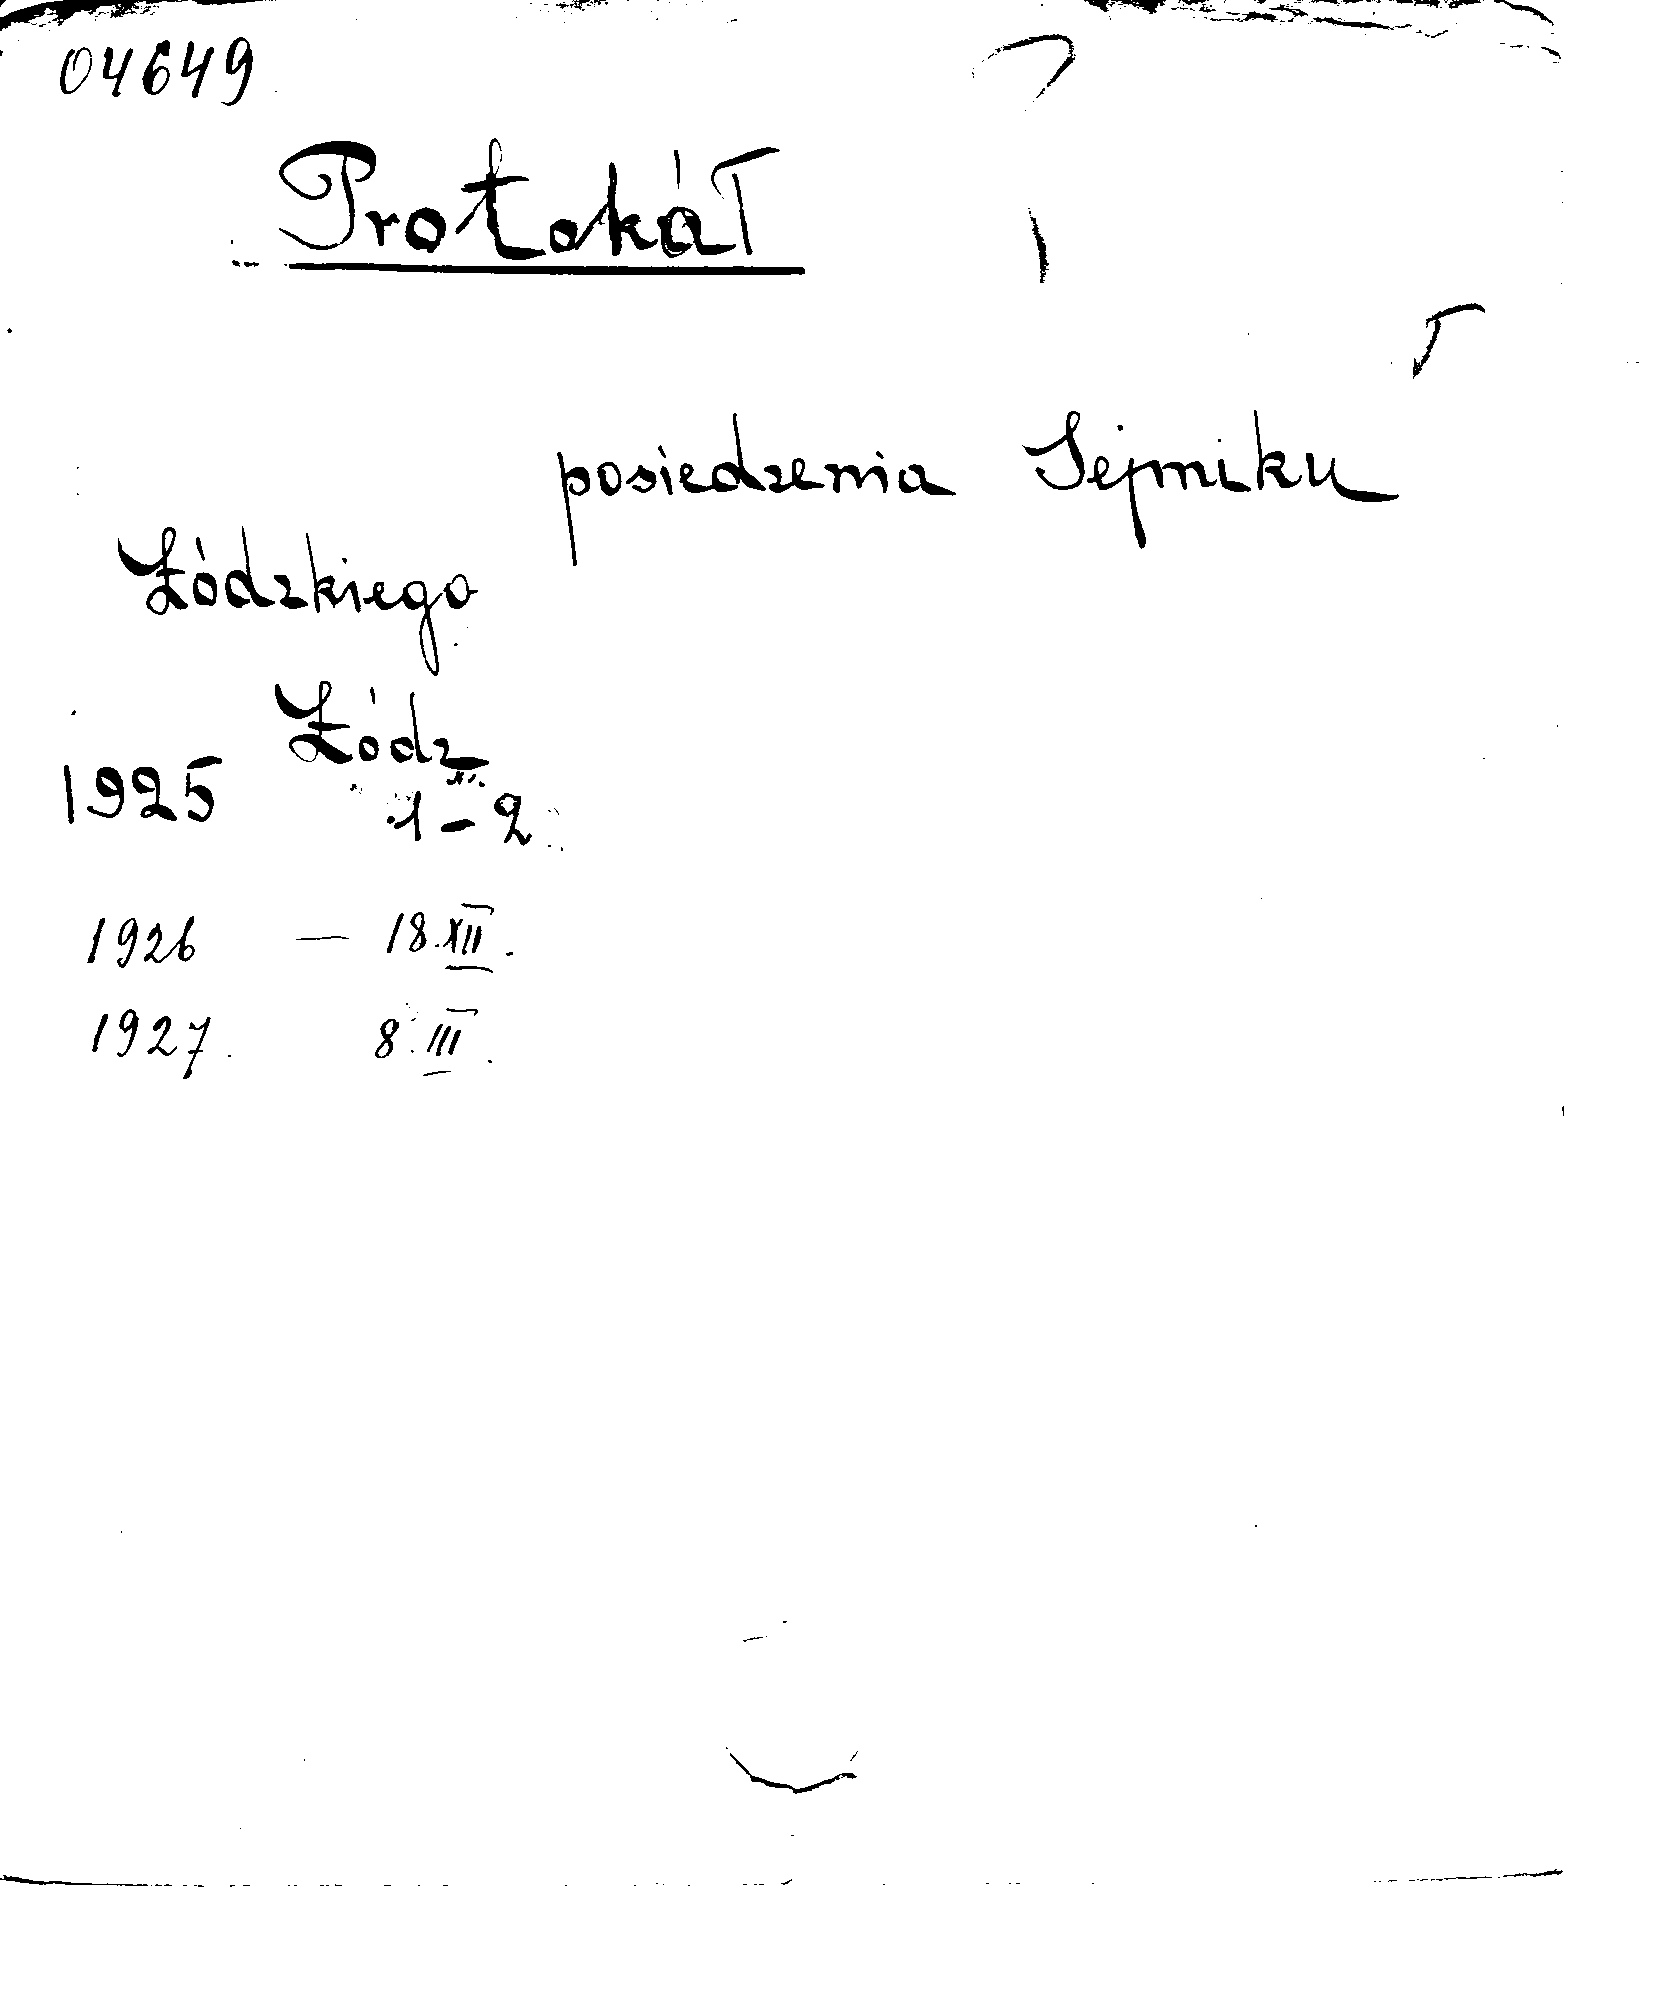 04649
Protokół
posiedzenia Sejmiku
Łódzkiego
Łódź
1925 1-2
1926 — 18.XII.
1927. 8.III.